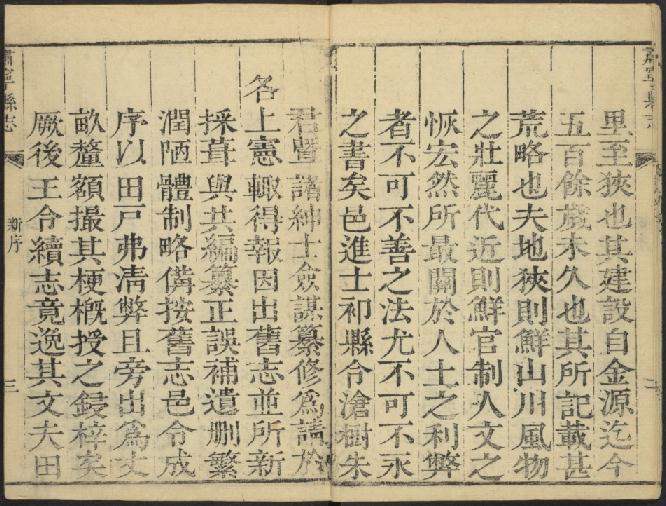 肅寧縣志
里至狹也其建設自金源迄今
五百餘歲未久也其所記載甚
荒略也夫地狹則鮮山川風物
之壯麗代近則鮮官制人文之
恢宏然所最關於人土之利弊
者不可不善之法尤不可不永
之書矣邑進士祁縣令滄樹朱
君曁諸紳士僉謀纂修爲請於
各上憲輙得報因出舊志並所新
採葺與共編纂正誤補遺删繁
潤陋體制略備按舊志邑令成
序以田戸弗淸弊且旁出爲丈
畝釐額撮其梗概授之鋟梓矣
厥後王令續志竟逸其文夫田
肅寧縣志
新序
三